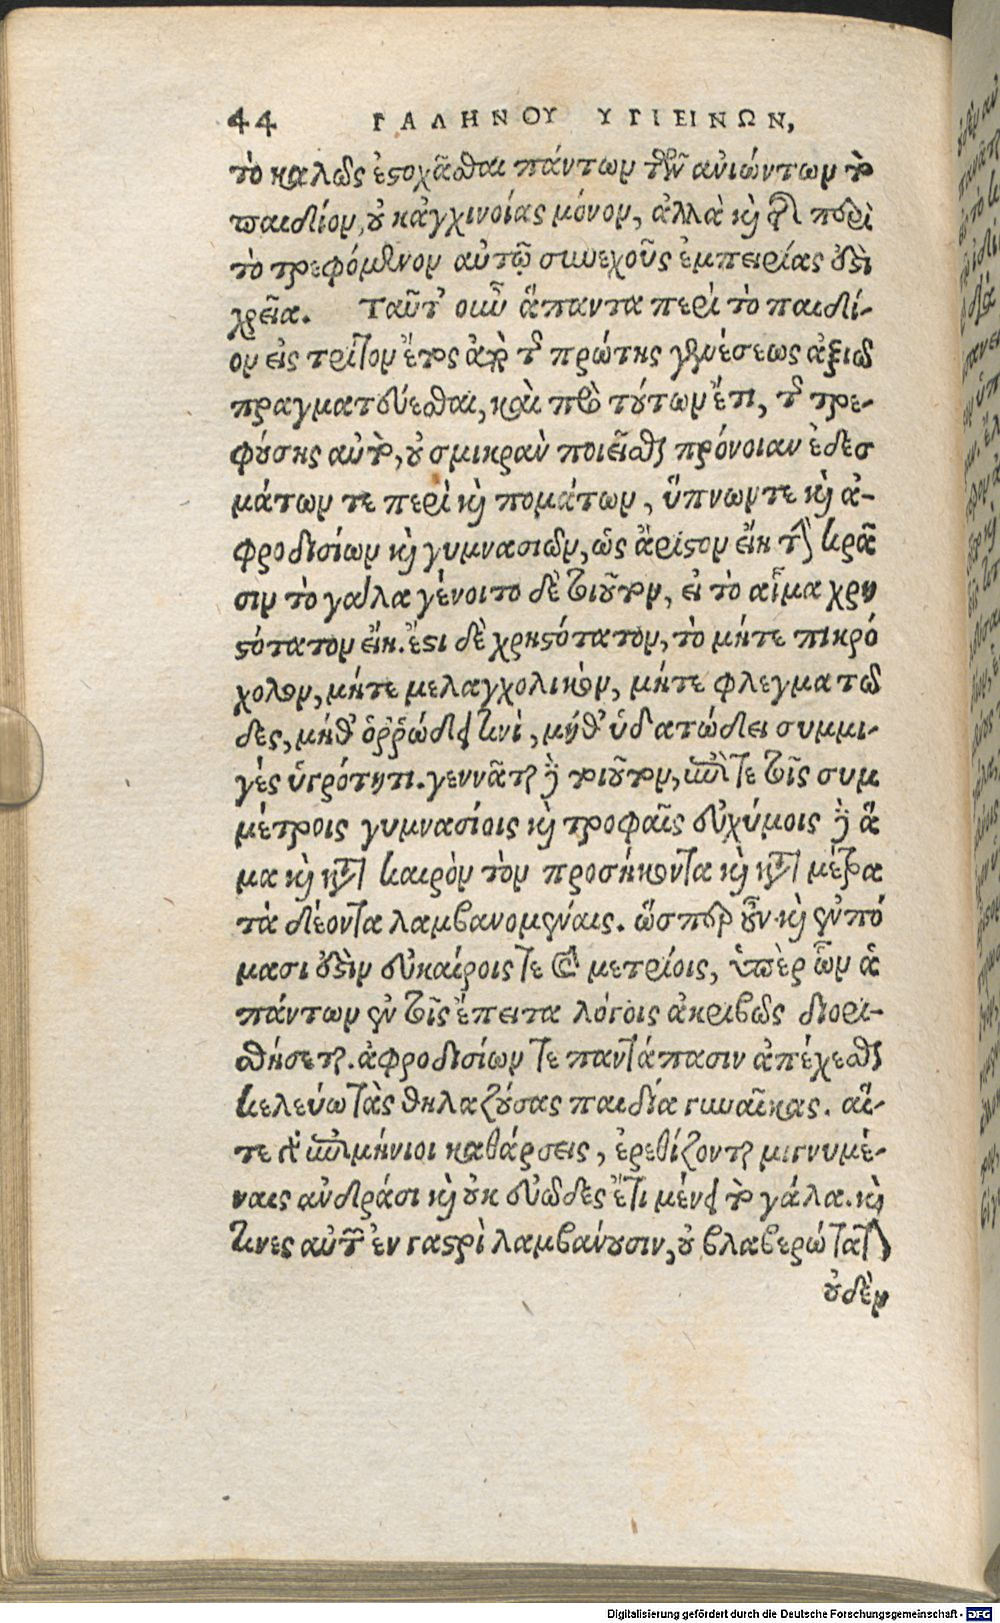 44 ΓΑΛΗΝΟΥ ΥΓΙΕΙΝΩΝ,
τὸ καλῶς ἐϛοχᾶσθαι πάντων τῶν ἀνιώντων τὸ
παιδίον, οὐ κἀγχινοίας μόνον, ἀλλὰ καὶ τῆς περὶ
τὸ τρεφόμενον αὐτῷ συνεχοῦς ἐμπειρίας ἐϛὶ
χρεῖα. Ταῦτ' οὖν ἅπαντα περὶ τὸ παιδί-
ον εἰς τρίτον ἔτος ἀπὸ τῆς πρώτης γενέσεως ἀξιῶ
πραγματεύεσθαι, καὶ πρὸ τούτων ἔτι, τῆς τρε-
φούσης αὐτὸ, οὐ σμικρὰν ποιεῖσθαι πρόνοιαν ἐδεσ
μάτων τε περὶ καὶ πομάτων, ὕπνων τε καὶ ἀ-
φροδισίων καὶ γυμνασιῶν, ὡς ἄριϛον εἴη τὴν κρᾶ
σιν τὸ γάλα γένοιτο δὲ τοιοῦτον, εἰ τὸ αἷμα χρη
ϛότατον εἴη. ἔϛι δὲ χρηϛότατον, τὸ μήτε πικρό
χολον, μήτε μελαγχολικὸν, μήτε φλεγματῶ
δες, μήθ' ὀῤῥώδει τινὶ, μήθ' ὑδατώδει συμμι-
γὲς ὑγρότητι. γεννᾶται δὲ τοιοῦτον, ἐπί τε τοῖς συμ
μέτροις γυμνασίοις καὶ τροφαῖς εὐχύμοις δὲ ἅ
μα καὶ κατὰ καιρὸν τὸν προσήκοντα καὶ κατὰ μέτρα
τὰ δέοντα λαμβανομέναις. ὥσπερ οὖν καὶ ἐν πό
μασι ἐϛὶν εὐκαίροις τε καὶ μετρίοις, ὑπὲρ ὧν ἁ
πάντων ἐν τοῖς ἔπειτα λόγοις ἀκριβῶς διορι-
σθήσεται. ἀφροδισίων τε παντάπασιν ἀπέχεσθαι
κελεύω τὰς θηλαζούσας παιδία γυναῖκας. αἵ-
τε γὰρ ἐπιμήνιοι καθάρσεις, ἐρεθίζονται μιγνυμέ-
ναις ἀνδράσι καὶ οὐκ εὐῶδες ἔτι μένει τὸ γάλα. καὶ
τινες αὐτῶν ἐν γαϛρὶ λαμβάνουσιν, οὗ βλαβερώτατον
οὐδὲν